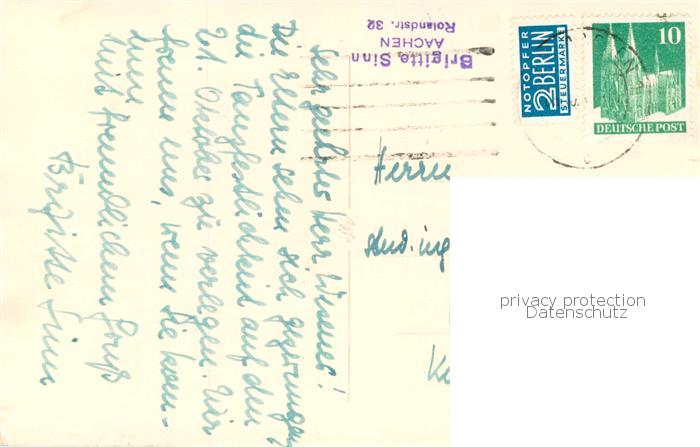 Sehr geehrter Herr Wiesner!
Die Eltern sehen sich gezwungen
die Tanzfestlichkeit auf den
21. Oktober zu verlegen. Wir
freuen uns, wenn Sie kom-
men
Mit freundlichem Gruß
Brigitte Sinn
Brigitte Sinn
AACHEN
Rolandstr. 32
NOTOPFER
2 BERLIN
STEUERMARKE
10
DEUTSCHE POST
Herrn
stud. ing.
privacy protection
Datenschutz